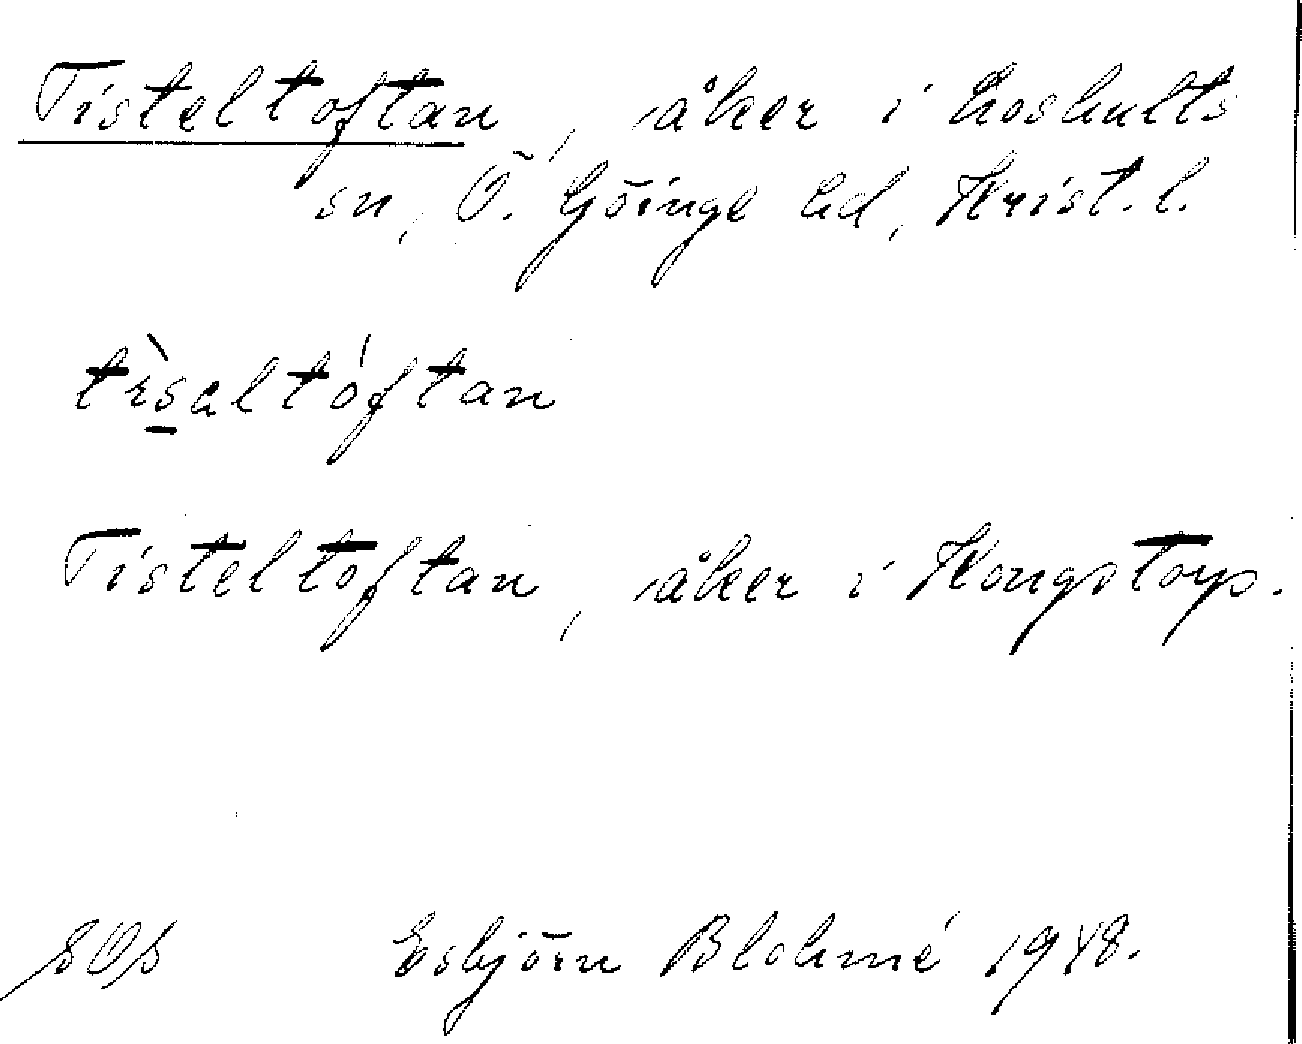 Tisteltoftan, åker i Loshults
sn, Ö. Göinge hd, Krist. l.
tìsaltóftan
Tisteltoftan, åker i Kongstorp.
Esbjörn Blohmé 1948.